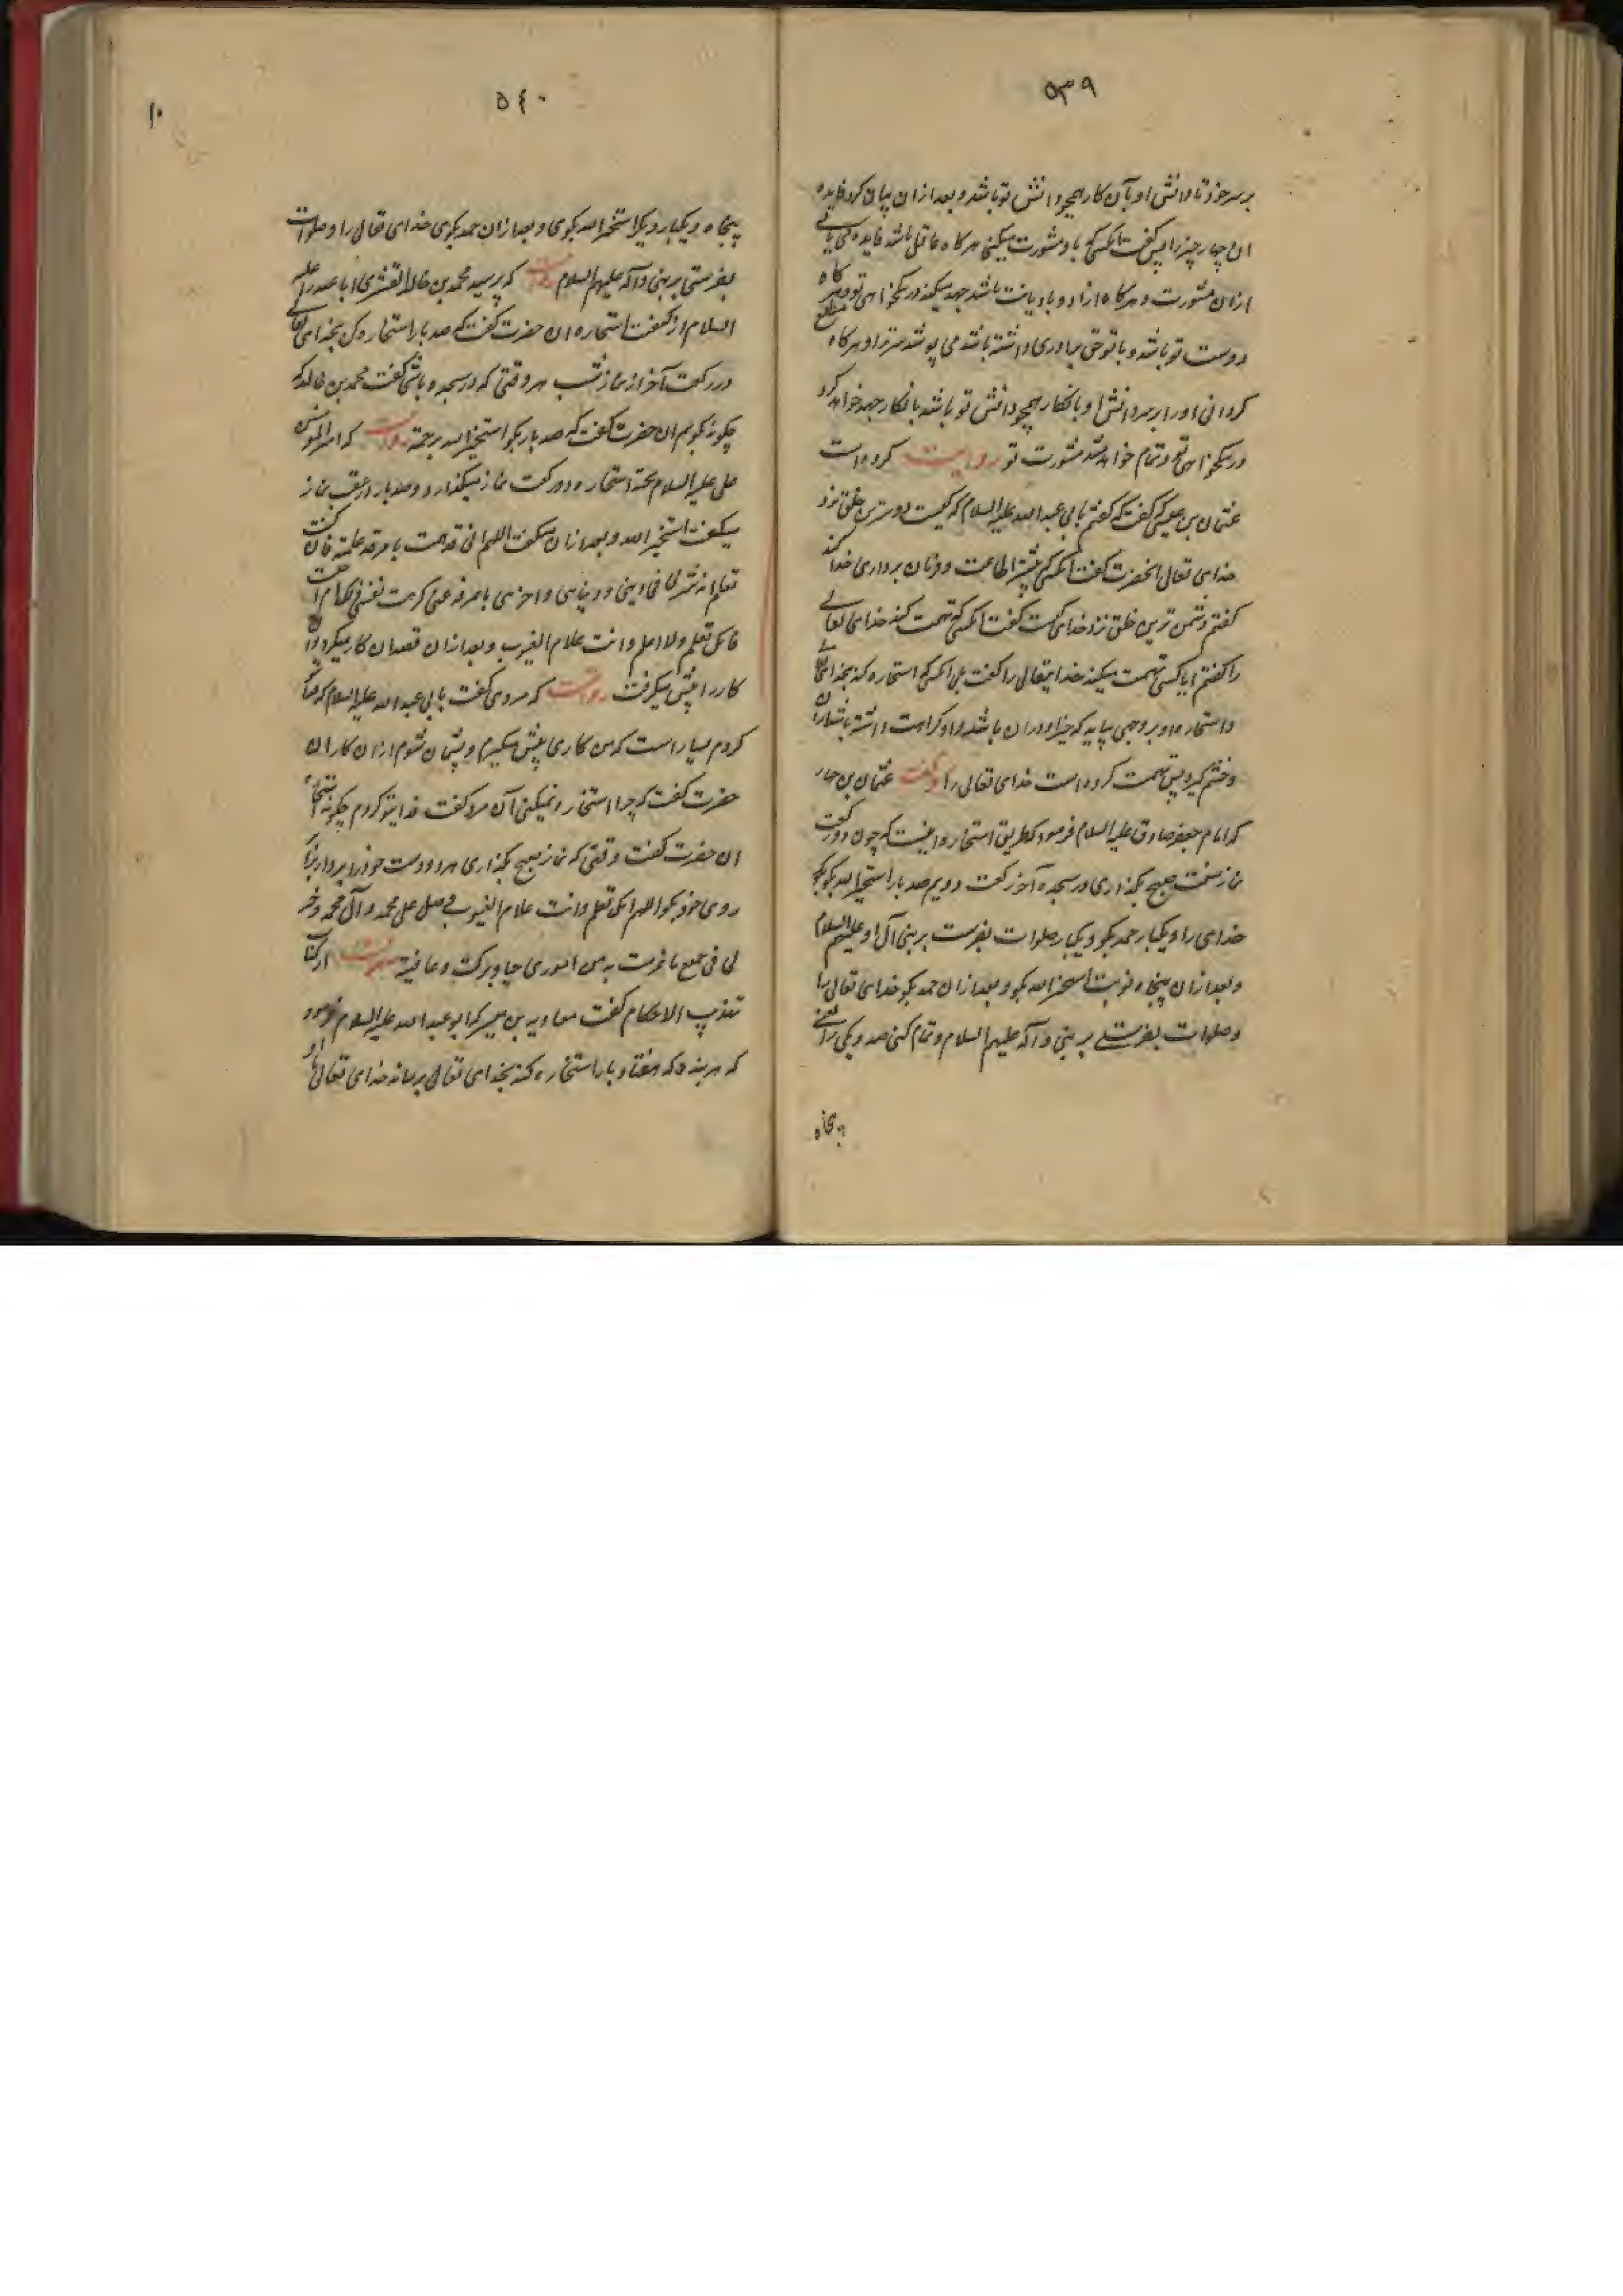 ۵۳۹
بر سر خود تا دانش او بآن کار همچو دانش تو باشد و بعد از ان بیان کرد فایده
ان چهار چیز را پس گفت انکسی که باو مشورت میکنی هر کاه عاقل باشد فایده می یابی
ازان مشورت و هر کاه ازاد و با دیانت باشد جهد میکند در نیکخواهی تو و هر کاه
دوست تو باشد و با تو حق برادری داشته باشد می پوشد سر ترا و هر کاه مطلع
کردانی او را بر سر دانش او بانکار همچو دانش تو باشد بانکار جهد خواهد کرد
در نیکخواهی تو و تمام خواهد شد مشورت تو روایت کرده است
عثمان بن عیسی که گفت که گفتم بابی عبد الله علیه السلام که کیست دوسترین خلق نزد
خدای تعالی انحضرت گفت انکسی که بیشتر اطاعت و فرمان برداری خدا کند
گفتم دشمن ترین خلق نزد خدا کیست گفت انکسی که تهمت کند خدای تعالی
را گفتم ایا کسی تهمت میکند خدایتعالی را گفت بلی انکسی که استخاره کند بخدای تعالی
و استخاره او بر وجهی بیاید که خیر او دران باشد و او کراهت داشته باشد ازان
و خشم گیرد پس تهمت کرده است خدای تعالی را عثمان بن
که امام جعفر صادق علیه السلام فرمود که طریق استخاره اینست که چون دو رکعت
نماز سنت صبح بکذاری در سجده آخر رکعت دویم صد بار استخیر الله بگو بگو
خدای را و یکبار حمد بگو و یکبار صلوات بفرست بر نبی و آل او علیهم السلام
و بعد ازان پنجاه نوبت استخیر الله بگو و بعد ازان حمد بگو خدای تعالی را
و صلوات بفرستی بر نبی و آله علیهم السلام و تمام کنی صد و یکی را یعنی
پنجاه
۵٤۰
۱۰
پنجاه و یکبار دیگر استخیر الله بگوی و بعد ازان حمد بگوی خدای تعالی را و صلوات
بفرستی بر نبی و آله علیهم السلام که پرسید محمد بن خالد القشری ابا عبد الله علیه
السلام از کیفیت استخاره ان حضرت گفت که صد بار استخاره کن بخدای تعالی
در رکعت آخر از نماز شب هر وقتی که در سجده باشی گفت محمد بن خالد که
چکونه بگویم ان حضرت گفت که صد بار بگو استخیر الله برحمته روایت که امیر المومنین
علی علیه السلام بجهة استخاره دو رکعت نماز میکذارد و صد بار در عقب نماز
میگفت استخیر الله و بعد ازان میگفت اللهم انی قد هممت بامر قد علمته فان کنت
تعلم انه شر لی فی دینی و دنیای و اخرتی فاصرفه عنی کرهت نفسی ذلک ام احبت
فانک تعلم ولا اعلم وانت علام الغیوب و بعد ازان قصد ان کار میکرد و ان
کار را پیش میگرفت روایت که مردی گفت بابی عبد الله علیه السلام که فدایت
کردم بسیار است که من کاری پیش میگیرم و پشیمان شوم ازان کار ان
حضرت گفت که چرا استخاره نمیکنی آن مرد گفت فدایتو کردم چکونه استخاره
ان حضرت گفت وقتی که نماز صبح بکذاری هر دو دست خود را بردار برابر
روی خود بگو اللهم انک تعلم وانت علام الغیوب فصل علی محمد و آل محمد و خر
لی فی جمیع ما عزمت به من اموری خیار برکت و عافیة از کتاب
تهذیب الاحکام گفت معاویه بن میسره که ابو عبد الله علیه السلام فرمود
که هر بنده که هفتاد بار استخاره کند بخدای تعالی برساند خدای تعالی باو